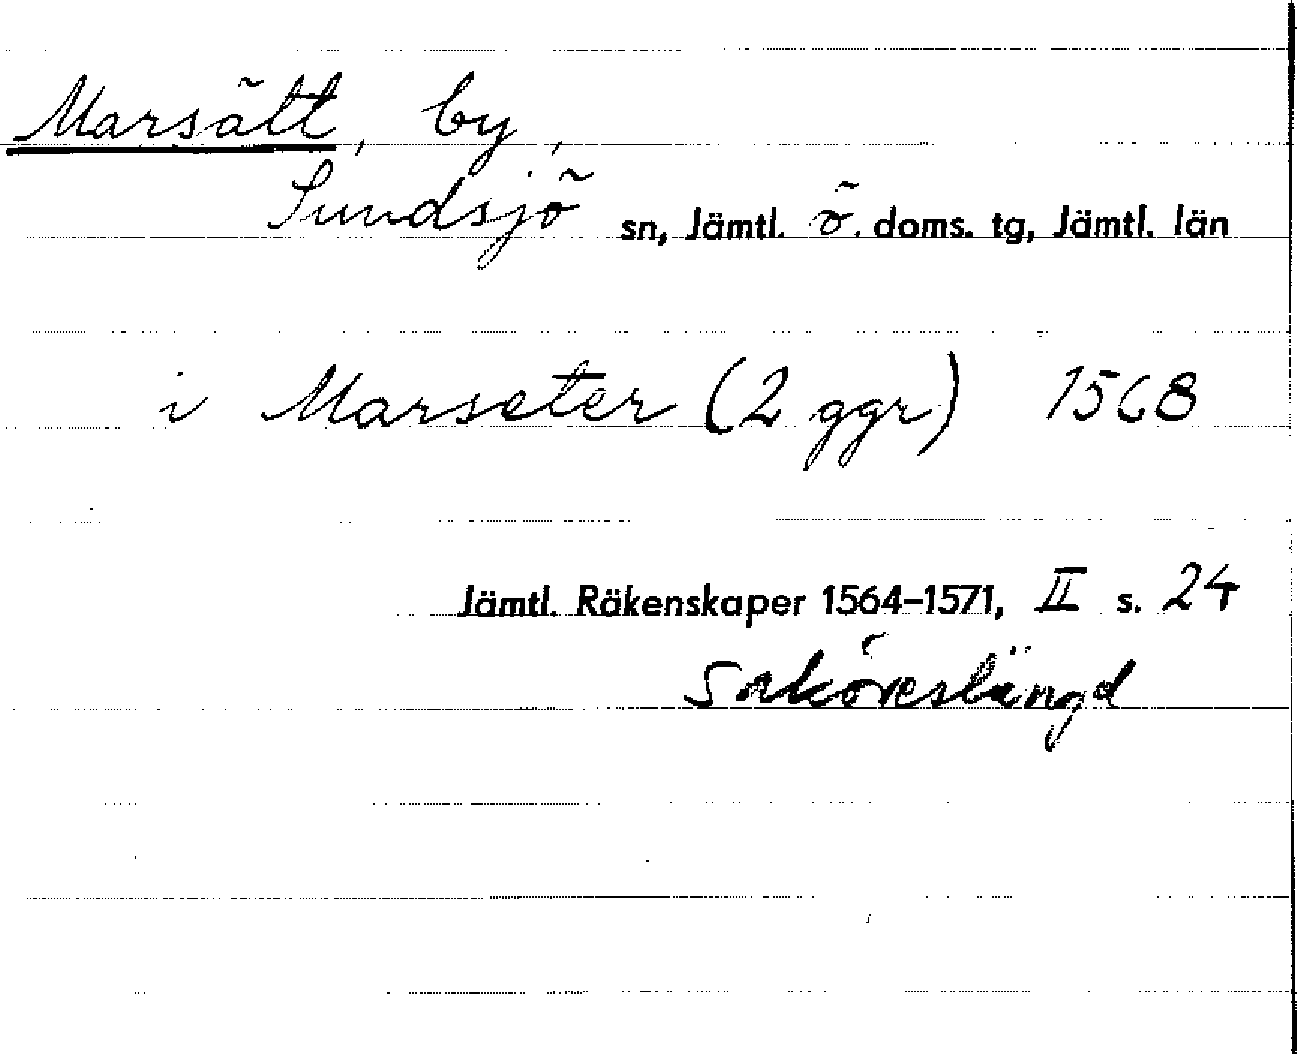 Marsätt, by,
Sundsjö sn, Jämtl. ö. doms. tg, Jämtl. län
i Marseter (2 ggr) 1568
Jämtl. Räkenskaper 1564-1571, II s. 24
Saköreslängd